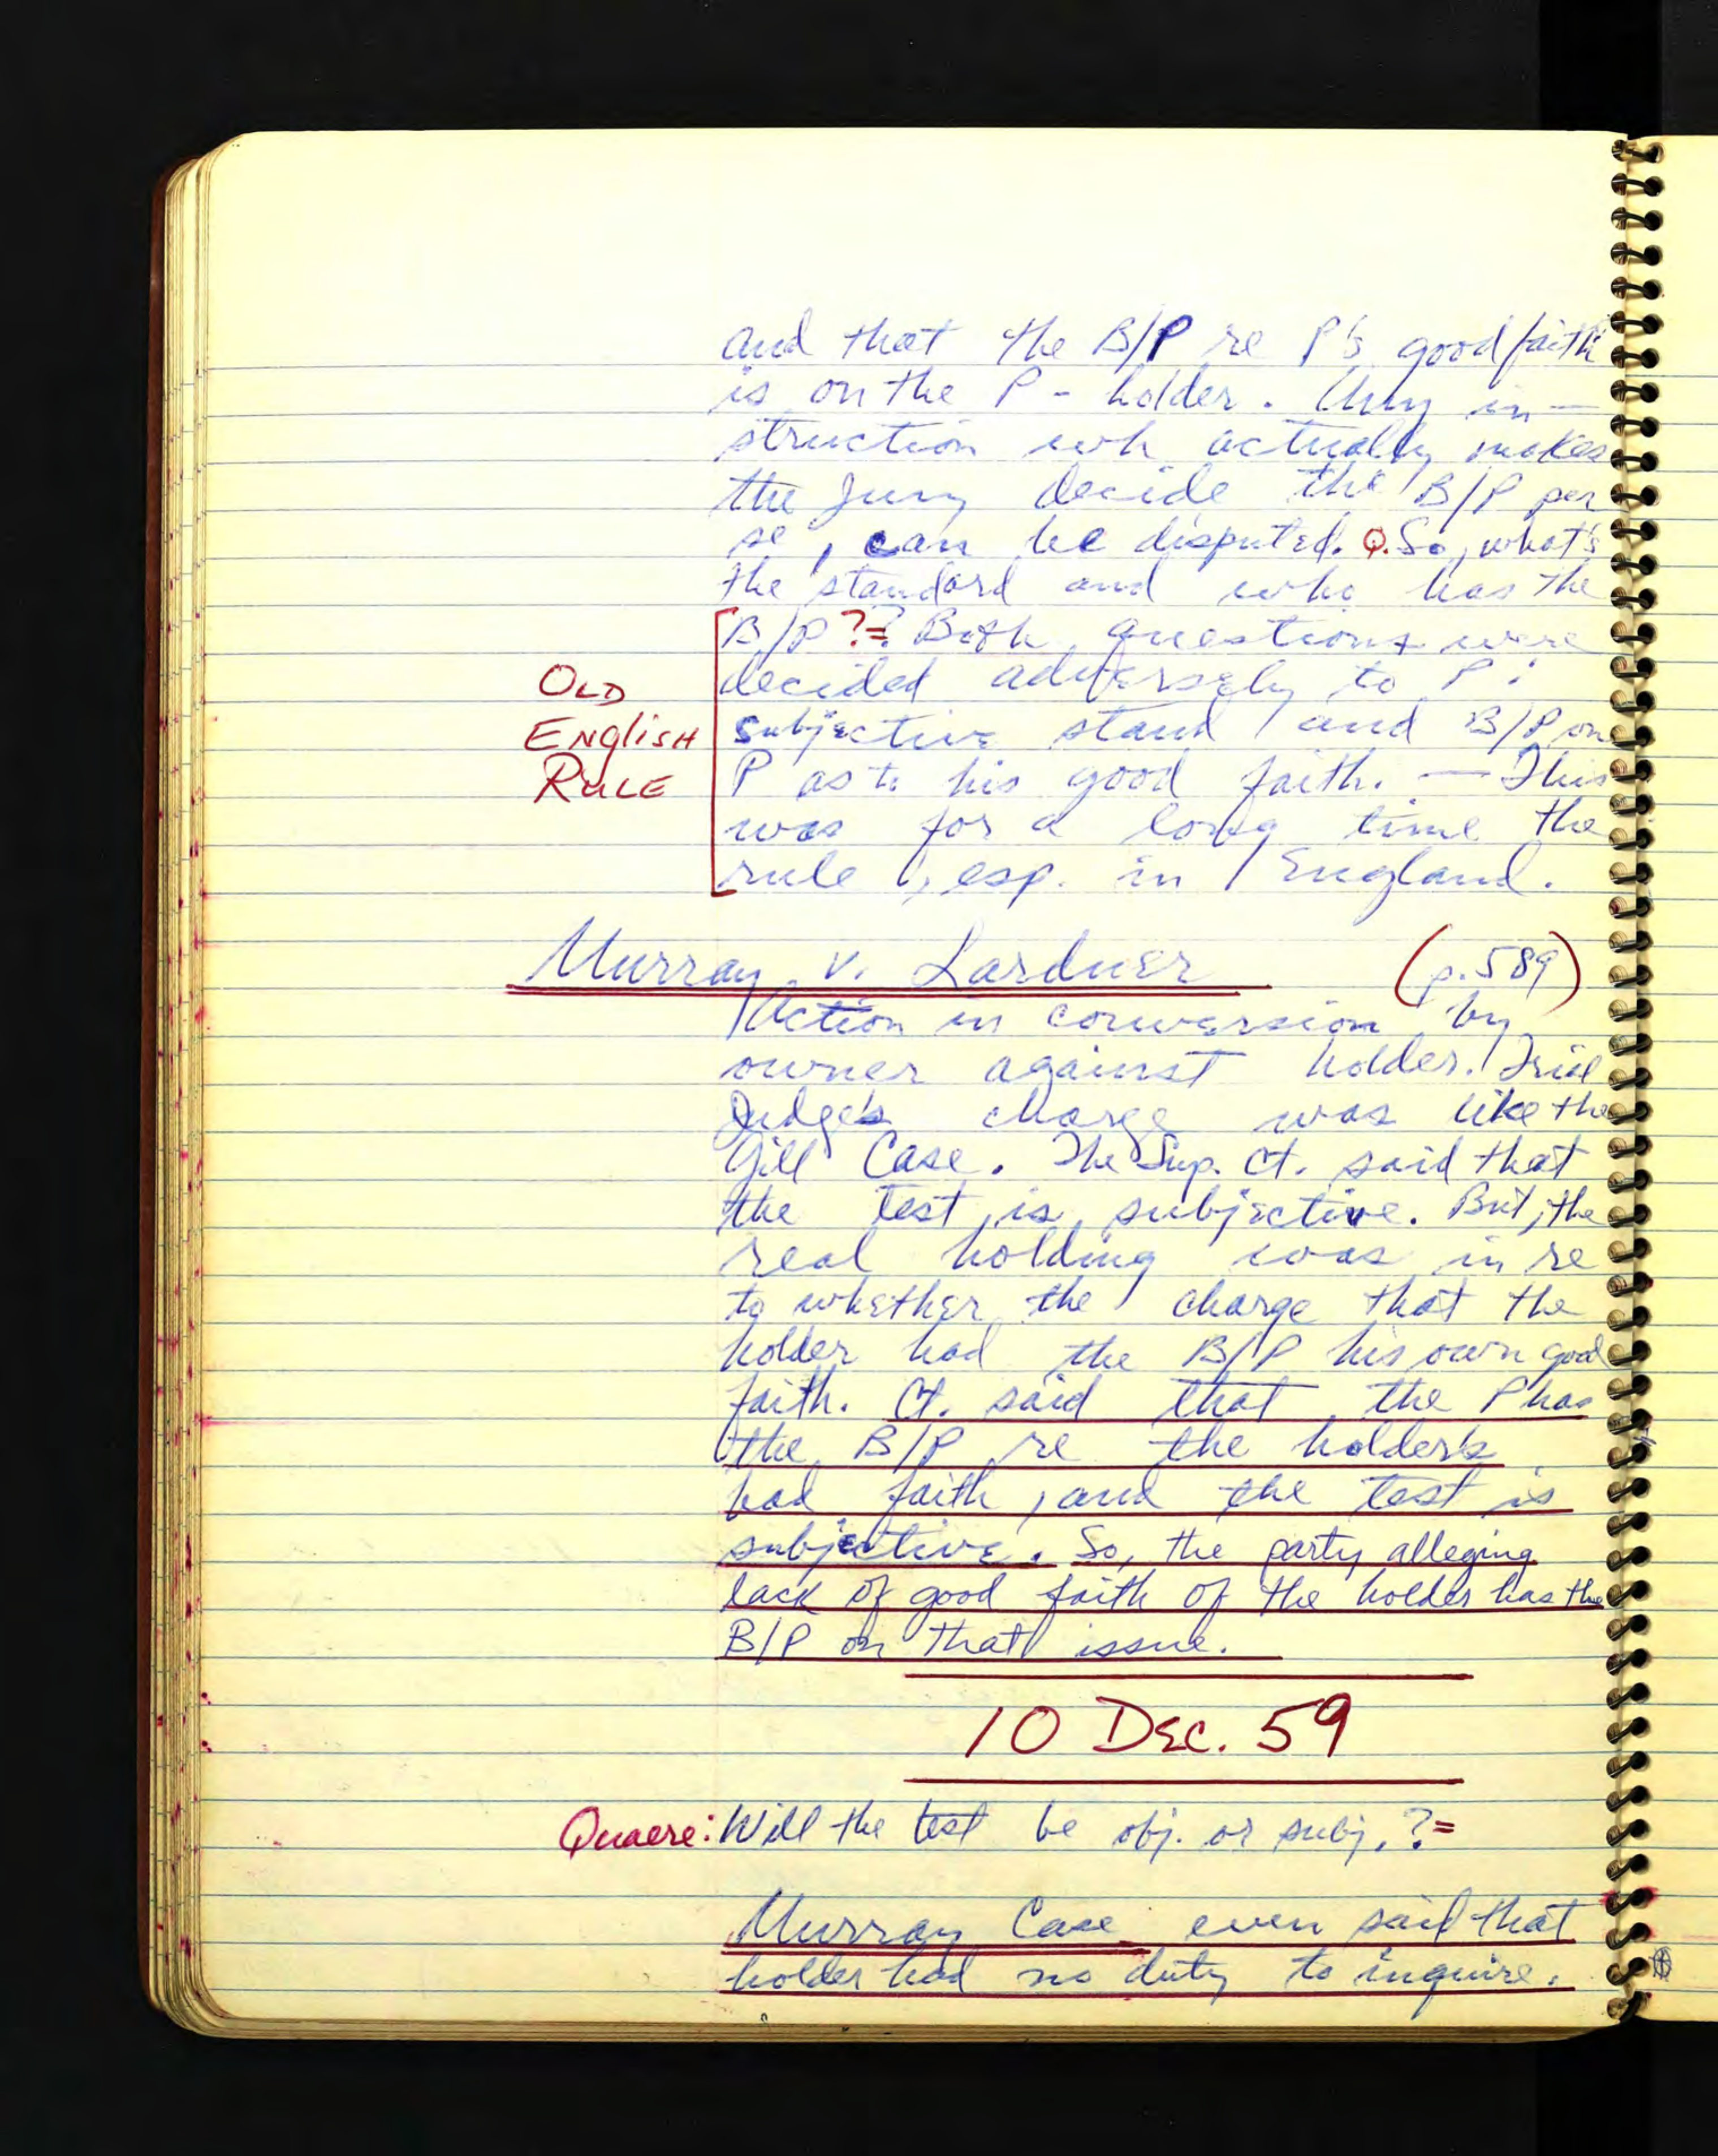 and that the B/P re P's good faith
is on the P - holder. Any in-
struction wh actually makes
the Jury decide the B/P per
se, can be disputed. Q. So, what's
the standard and who has the
B/P ?= Both questions were
decided adversely to P:
OLD ENGLISH RULE
subjective stand and B/P on
P as to his good faith. — This
was for a long time the
rule, esp. in England.
Murray v. Lardner (p. 589)
Action in conversion by
owner against holder. Trial
Judge's charge was like the
Gill Case. The Sup. Ct. said that
the test is subjective. But, the
real holding was in re
to whether the charge that the
holder had the B/P his own good
faith. Ct. said that the P has
the B/P re the holder's
bad faith, and the test is
subjective. So, the party alleging
lack of good faith of the holder has the
B/P on that issue.
10 DEC. 59
Quaere: Will the test be obj. or subj. ?=
Murray Case even said that
holder had no duty to inquire.